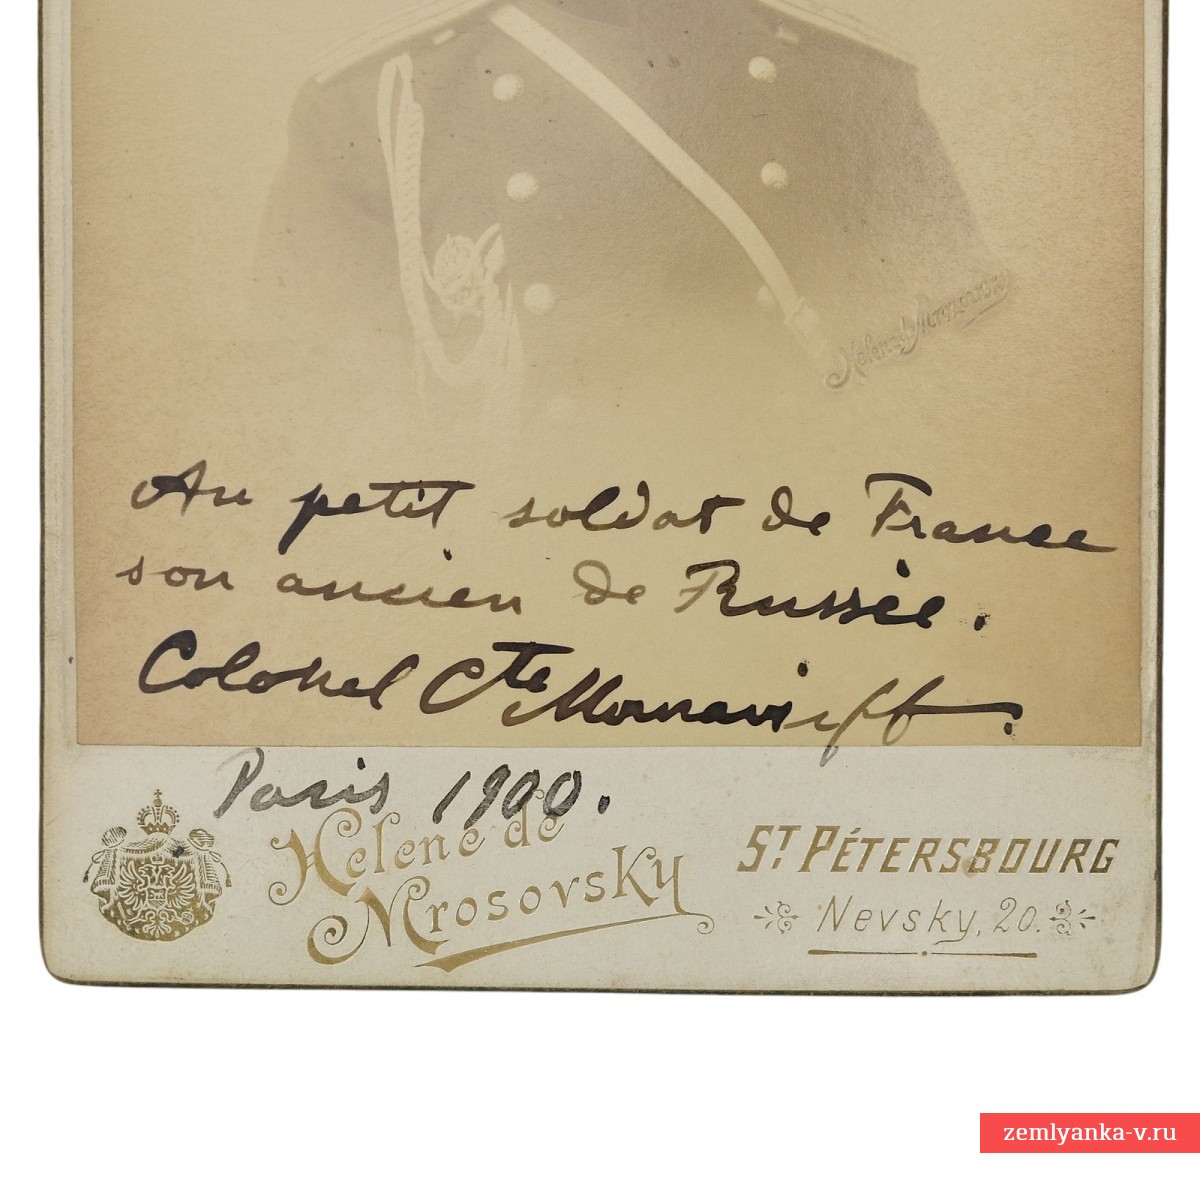 Helene de Mrosovsky
Au petit soldat de France
son ancien de Russie.
Colonel Cte Mouravieff.
Paris 1900.
Helene de
Mrosovsky
ST PÉTERSBOURG
Nevsky, 20.
zemlyanka-v.ru